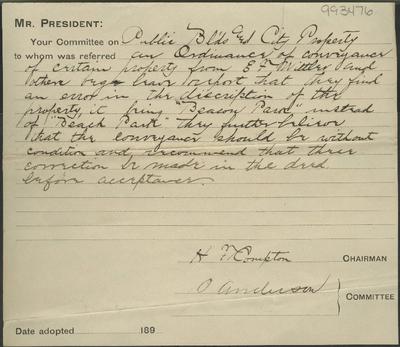 993476
MR. PRESIDENT:
Your Committee on Public Bld's and City Property
to whom was referred an Ordinance of conveyance
of certain property from E F Wittler and
others beg leave to report that they find
an error in the discription of the
property, it being "Beason Park" instead
of "Beach Park" they further believe
that the conveyance should be without
condition and, recommend that there
correction be made in the deed
before acceptance.
H F Compton CHAIRMAN
O Anderson
COMMITTEE
Date adopted 189